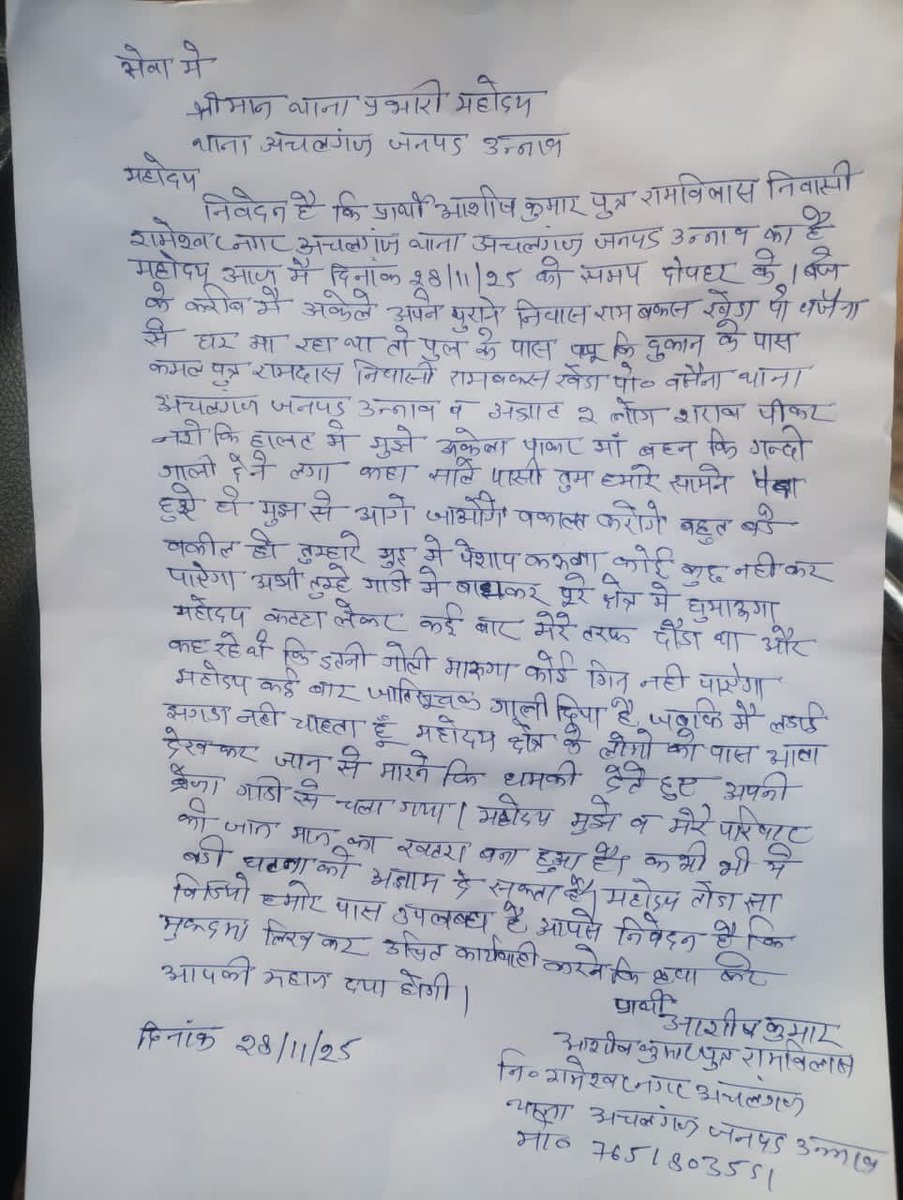 सेवा मे
श्रीमान थाना प्रभारी महोदय
थाना अचलगंज जनपद उन्नाव
महोदय
निवेदन है कि प्रार्थी आशीष कुमार पुत्र रामविलास निवासी
रामेश्वर नगर अचलगंज थाना अचलगंज जनपद उन्नाव का है
महोदय आज मै दिनांक 28/11/25 को समय दोपहर के 1 बजे
के करीब मै अकेले अपने पुराने निवास राम बकस खेडा पो
से घर आ रहा था तो पुल के पास पप्पू कि दुकान के पास
कमल पुत्र रामदास निवासी रामबकस खेडा पो० थाना
अचलगंज जनपद उन्नाव व अज्ञात 2 लोग शराब पीकर
नशे कि हालत मे मुझे अकेला पाकर माँ बहन कि गन्दी
गाली देने लगा कहा साले पासी तुम हमारे सामने पैदा
हुये हो मुझ से आगे जाओगे वकालत करोगे बहुत बडे
वकील हो तुम्हारे मुह मे पेशाप करूगा कोई कुछ नही कर
पाऐगा अभी तुम्हे गाडी मे बाधकर पूरे क्षेत्र मे घुमाऊगा
महोदय कट्टा लेकर कई बार मेरे तरफ दौडा था और
कह रहे थे कि इतनी गोली मारूगा कोई गिन नही पाऐगा
महोदय कई बार जातिसूचक गाली दिया है जबकि मै लडाई
झगडा नही चाहता हूँ महोदय क्षेत्र के लोगो को पास आता
देख कर जान से मारने कि धमकी देते हुए अपनी
ब्रेजा गाडी से चला गया। महोदय मुझे व मेरे परिवार
को जान माल का खतरा बना हुआ है। कभी भी ये
बडी घटना को अंजाम दे सकता है। महोदय तोडा सा
विडियो हमारे पास उपलब्ध है आपसे निवेदन है कि
मुकदमा लिख कर उचित कार्यवाही करने कि कृपा करे
आपकी महान दया होगी।
प्रार्थी
आशीष कुमार
आशीष कुमार पुत्र रामविलास
दिनांक 28/11/25
नि० रामेश्वर नगर अचलगंज
थाना अचलगंज जनपद उन्नाव
मो० 7651803551